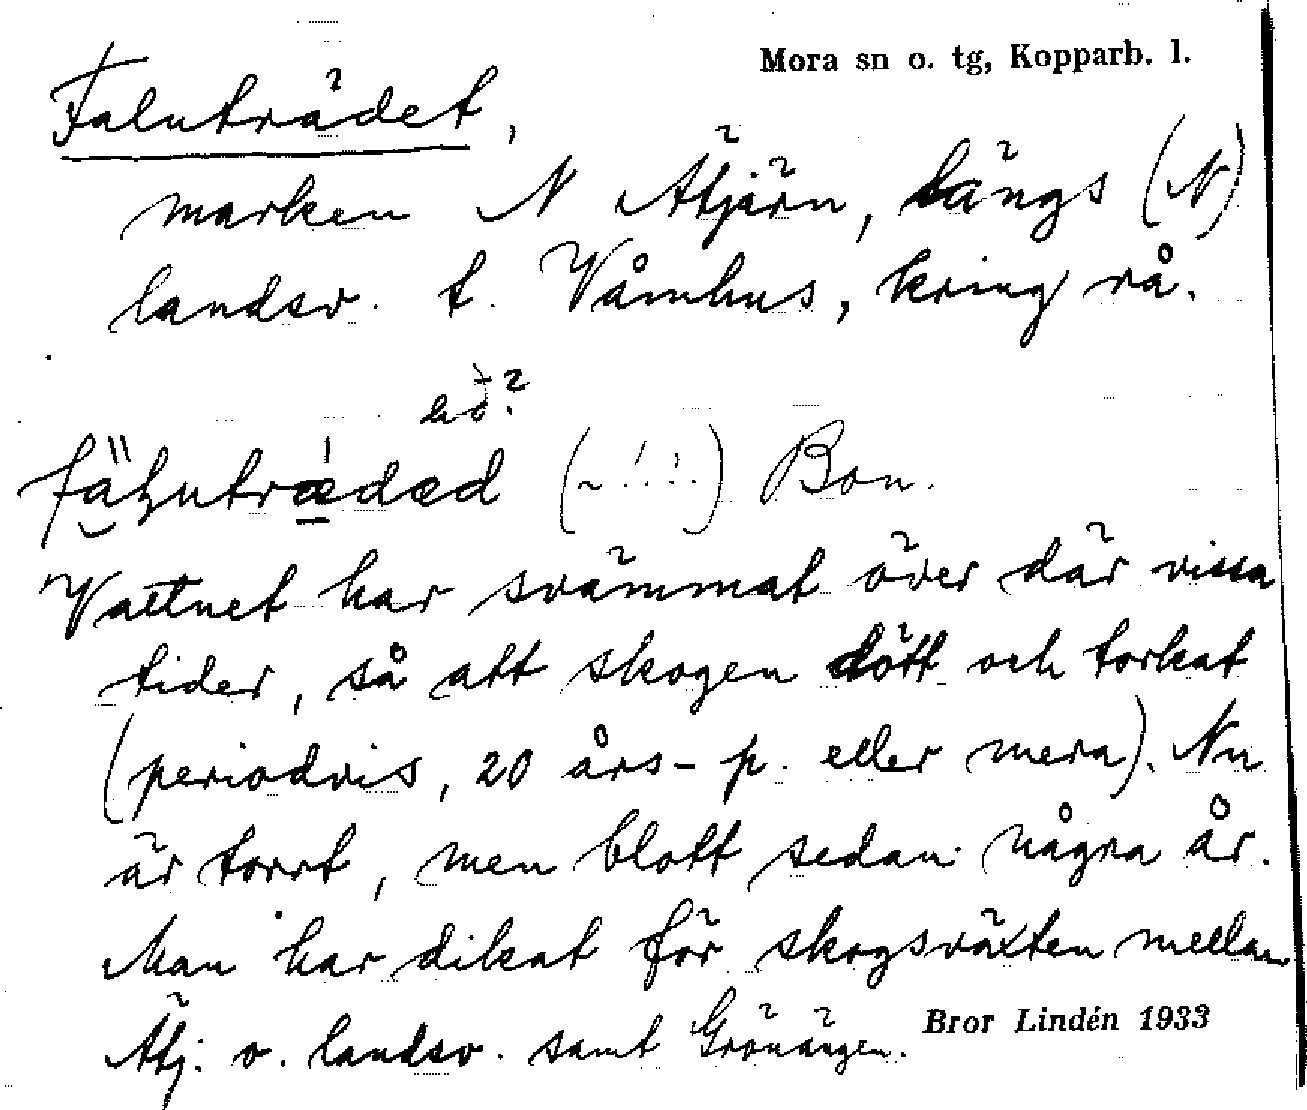 Mora sn o. tg, Kopparb. l.
Faluträdet,
marken N Ätjärn, längs (N)
landsv. t. Våmhus, kring rå.
Bon.
Vattnet har svämmat över där vissa
tider, så att skogen dött och torkat
(periodvis, 20 års-p. eller mera). Nu
är torrt, men blott sedan några år.
Man har dikat för skogsväxten mellan
Ätj. o. landsv. samt Grönängen.
Bror Lindén 1933